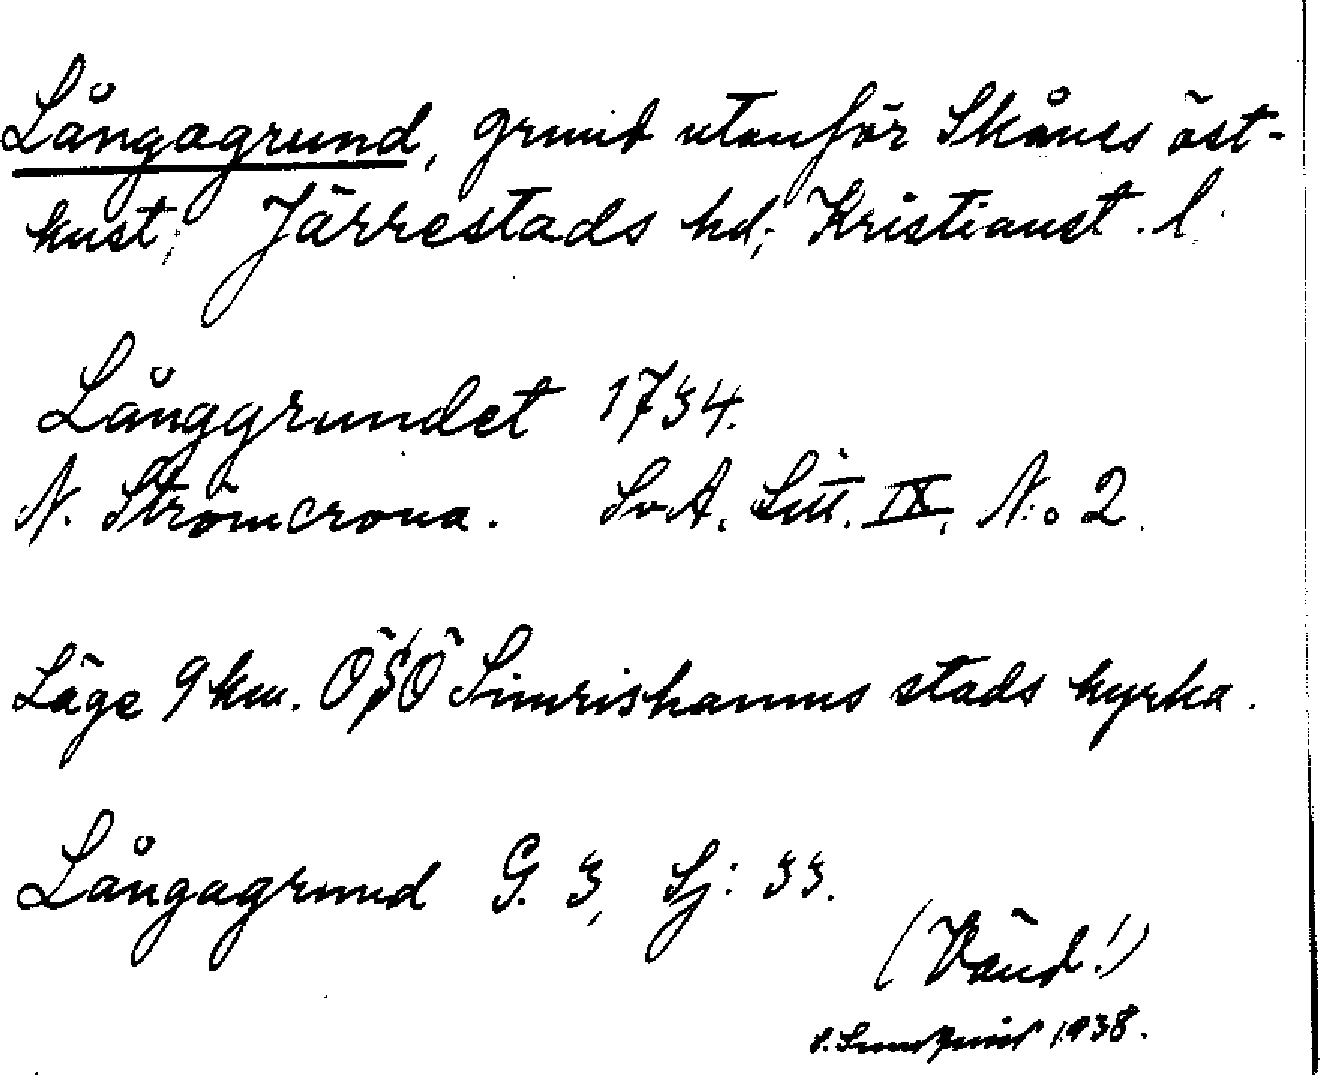 Långagrund, grund utanför Skånes öst-
kust, Järrestads hd, Kristianst. l.
Långgrundet 1734.
N. Strömcrona. SvA. Litt. IX, N:o 2.
Läge 9 km. OSO Simrishamns stads kyrka.
Långagrund G. 3, Sj: 33.
(Vänd!)
1938.